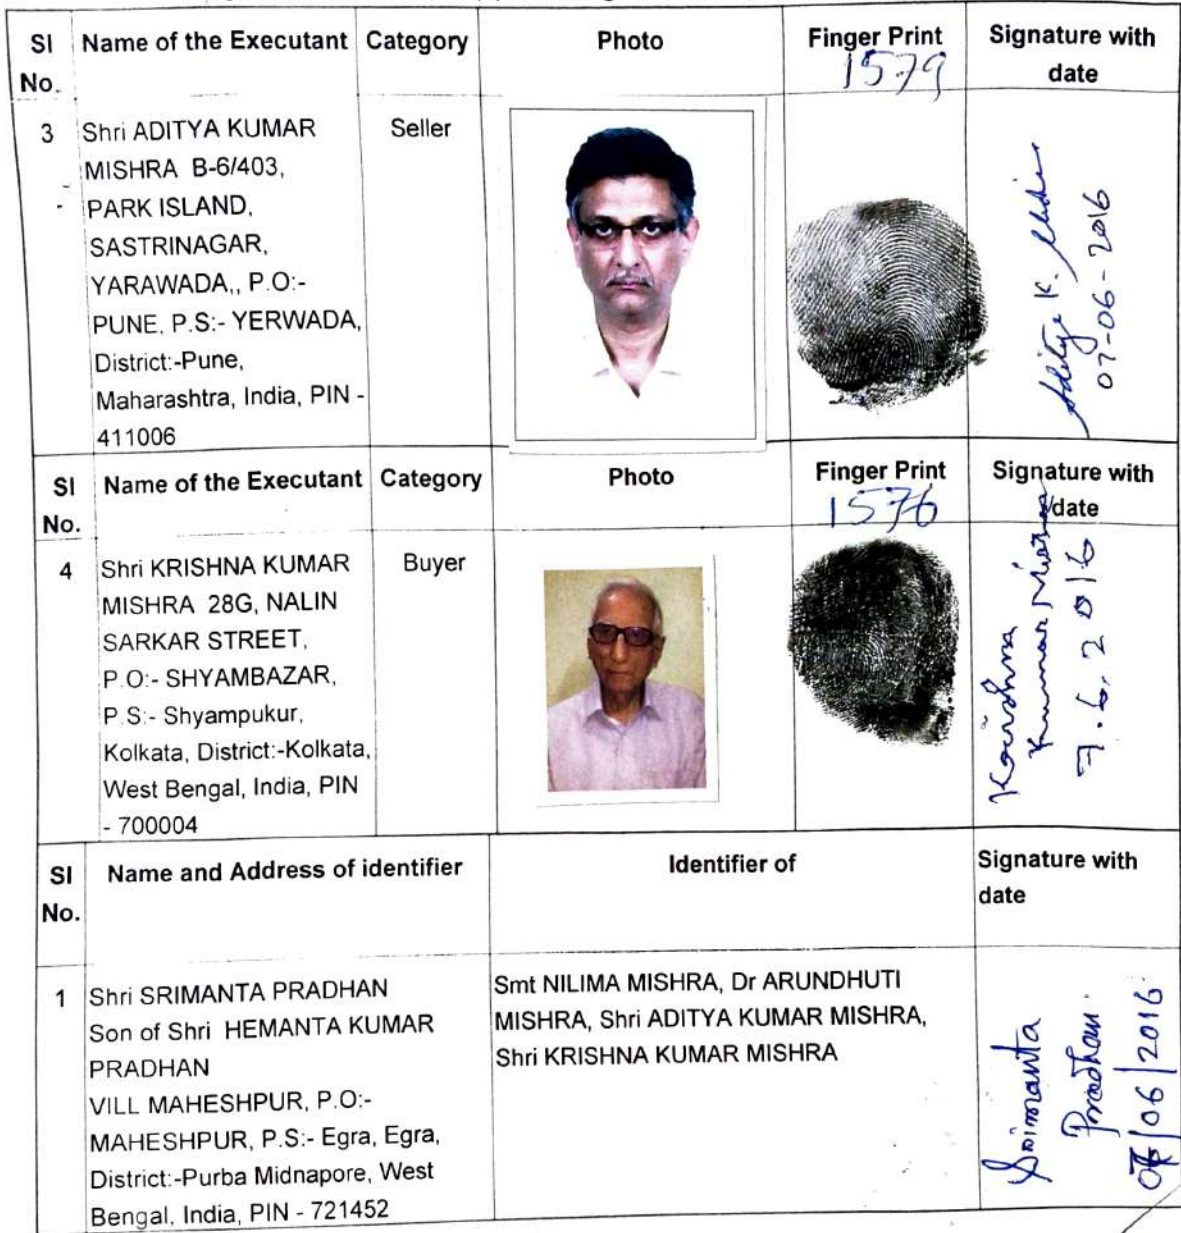 Sl No. Name of the Executant Category Photo Finger Print Signature with date
1579
3 Shri ADITYA KUMAR Seller
MISHRA B-6/403,
PARK ISLAND,
SASTRINAGAR,
YARAWADA,, P.O:-
PUNE, P.S:- YERWADA,
District:-Pune,
Maharashtra, India, PIN -
411006
Aditya K.
07-06-2016
Sl No. Name of the Executant Category Photo Finger Print Signature with date
1576
4 Shri KRISHNA KUMAR Buyer
MISHRA 28G, NALIN
SARKAR STREET,
P.O:- SHYAMBAZAR,
P.S:- Shyampukur,
Kolkata, District:-Kolkata,
West Bengal, India, PIN
- 700004
Krishna
Kumar Mishra
7.6.2016
Sl No. Name and Address of identifier Identifier of Signature with date
1 Shri SRIMANTA PRADHAN
Son of Shri HEMANTA KUMAR
PRADHAN
VILL MAHESHPUR, P.O:-
MAHESHPUR, P.S:- Egra, Egra,
District:-Purba Midnapore, West
Bengal, India, PIN - 721452
Smt NILIMA MISHRA, Dr ARUNDHUTI
MISHRA, Shri ADITYA KUMAR MISHRA,
Shri KRISHNA KUMAR MISHRA
Srimanta
Pradhan.
07/06/2016